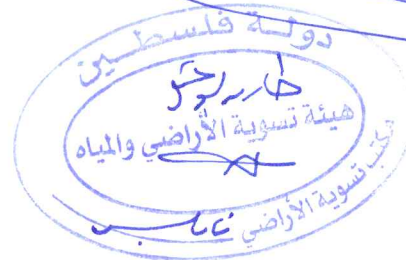 دولة فلسطين
هيئة تسوية الأراضي والمياه
مكتب تسوية الأراضي
نابلس